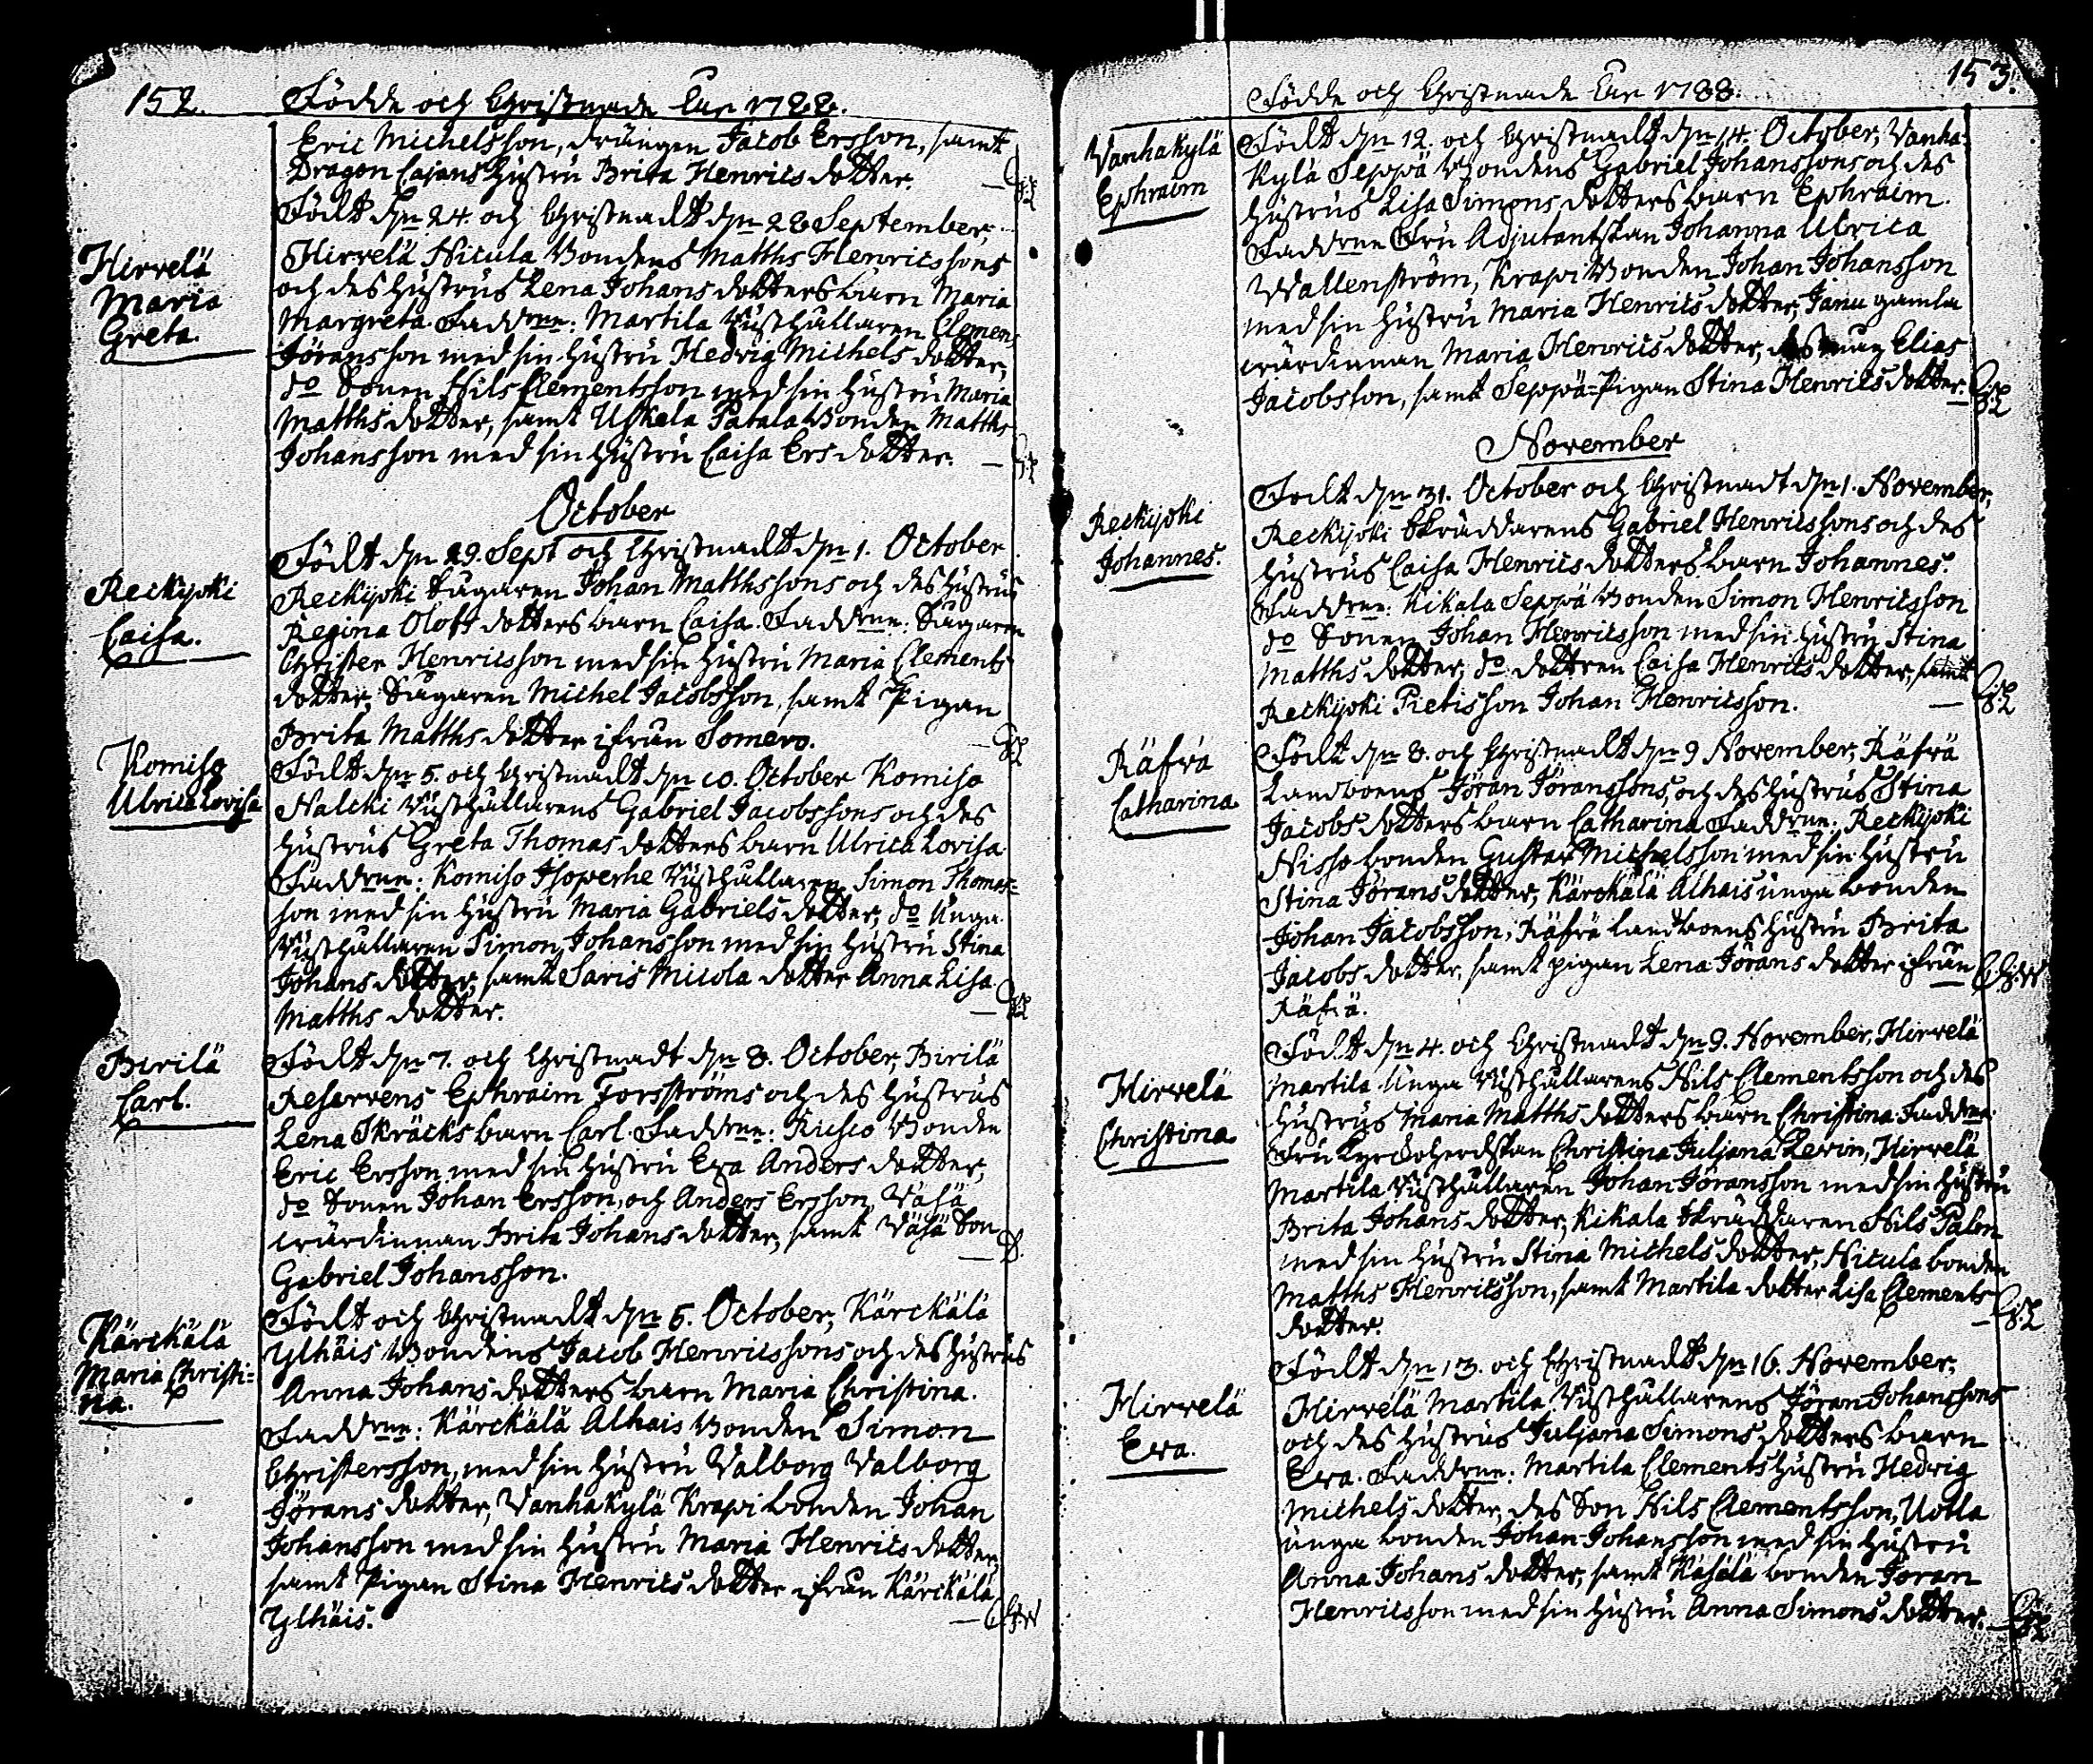 152. Födde och Christnade Åhr 1788.
Eric Michelsson, drängen Jacob Ersson, samt
Dragon Cajans hustru Brita Henrics dotter.
Hirvelä
Maria
Greta.
Födt dn 24. och Christnadt dn 28 September,
Hirvelä Nicula Bondens Matths Henricssons
och des hustrus Lena Johans dotters barn Maria
Margreta. Faddrne: Martila Rusthållaren Clemens
Jöransson med sin hustru Hedvig Michels dotter,
do Sonen Nils Clementsson med sin hustru Maria
Matths dotter, samt Uskela Patala Bonden Matths
Johansson med sin hustru Caisa Ers dotter.
October
Reckijoki
Caisa.
Födt dn 29. Sept och Christnadt dn 1. October
Reckijoki Sågaren Johan Matthssons och des hustrus
Regina Olofs dotters barn Caisa. Faddrne: Sågaren
Christer Henricsson med sin hustru Maria Clements
dotter, Sågaren Michel Jacobsson, samt Pigan
Brita Matths dotter ifrån Somero.
Komiso
Ulrica Lovisa
Födt dn 5. och Christnadt dn 10. October Komiso
Nalcki Rusthållarens Gabriel Jacobssons och des
hustrus Greta Thomas dotters barn Ulrica Lovisa.
Faddrne: Komiso Isoperhe Rusthållaren Simon Thomas-
son med sin hustru Maria Gabriels dotter, do Unga
Rusthållaren Simon Johansson med sin hustru Stina
Johans dotter, samt Saris Micola dotter Anna Lisa
Matths dotter.
Birilä
Carl.
Födt dn 7. och Christnadt dn 8. October, Birilä
Reservens Ephraim Forsströms och des hustrus
Lena Skräcks barn Carl. Faddrne: Kusco Bonden
Eric Ersson med sin hustru Eva Anders dotter,
do Sonen Johan Ersson, och Anders Ersson, Väsä
wärdinnan Brita Johans dotter, samt Väsä Son
Gabriel Johansson.
Kärckälä
Maria Christi-
na.
Födt och Christnadt dn 5. October, Kärckälä
Ylhäis Bondens Jacob Henricssons och des hustrus
Anna Johans dotters barn Maria Christina.
Faddrne: Kärckälä Alhais Bonden Simon
Christersson, med sin hustru Valborg Valborg
Jörans dotter, Vanhakylä Krapi bonden Johan
Johansson med sin hustru Maria Henrics dotter,
samt Pigan Stina Henrics dotter ifrån Kärckälä
Ylhäis.
Födde och Christnade Åhr 1788. 153.
Vanhakylä
Ephraim
Födt dn 12. och Christnadt dn 14. October, Vanha-
kylä Seppä Bondens Gabriel Johanssons och des
hustrus Lisa Simons dotters barn Ephraim.
Faddrne Fru Adjutantskan Johanna Ulrica
Wallenström, Krapi Bonden Johan Johansson
med sin hustru Maria Henrics dotter, Janu gamla
wärdinnan Maria Henrics dotter, des måg Elias
Jacobsson, samt Seppä-Pigan Stina Henrics dotter.
November
Reckijoki
Johannes.
Födt dn 31. October och Christnadt dn 1. November,
Reckijoki Skräddarens Gabriel Henricssons och des
hustrus Caisa Henrics dotters barn Johannes.
Faddrne: Kikala Seppä Bonden Simon Henricsson
do Sonen Johan Henricsson med sin hustru Stina
Matths dotter, do dottren Caisa Henrics dotter, samt
Reckijoki Pietisson Johan Henricsson.
Räfvä
Catharina
Födt dn 8. och Christnadt dn 9 November, Räfvä
Landboens Jöran Jöranssons, och des hustrus Stina
Jacobs dotters barn Catharina Faddrne: Reckijoki
Nisso bonden Gustav Michelsson med sin hustru
Stina Jörans dotter, Kärckälä Alhais unga bonden
Johan Jacobsson, Räfvä Landboens hustru Brita
Jacobs dotter, samt pigan Lena Jörans dotter ifrån
Räfvä.
Hirvelä
Christina
Födt dn 4. och Christnadt dn 9. November, Hirvelä
Martila Unga Rusthållarens Nils Clementsson och des
hustrus Maria Matths dotters barn Christina. Faddrne:
Fru Kyrckoherdskan Christina Juljana Levin, Hirvelä
Martila Rusthållaren Johan Jöransson med sin hustru
Brita Johans dotter, Kikala Skräddaren Nils Palen
med sin hustru Stina Michels dotter, Nicula bonden
Matths Henricsson, samt Martila dotter Lisa Clements
dotter.
Hirvelä
Eva.
Födt dn 13. och Christnadt dn 16. November,
Hirvelä Martila Rusthållarens Jöran Johanssons
och des hustrus Juljana Simons dotters barn
Eva. Faddrne: Martila Clements hustru Hedvig
Michels dotter, des Son Nils Clementsson, Uotla
unga bonden Johan Johansson med sin hustru
Anna Johans dotter, samt Käsälä bonden Jöran
Henricsson med sin hustru Anna Simons dotter.